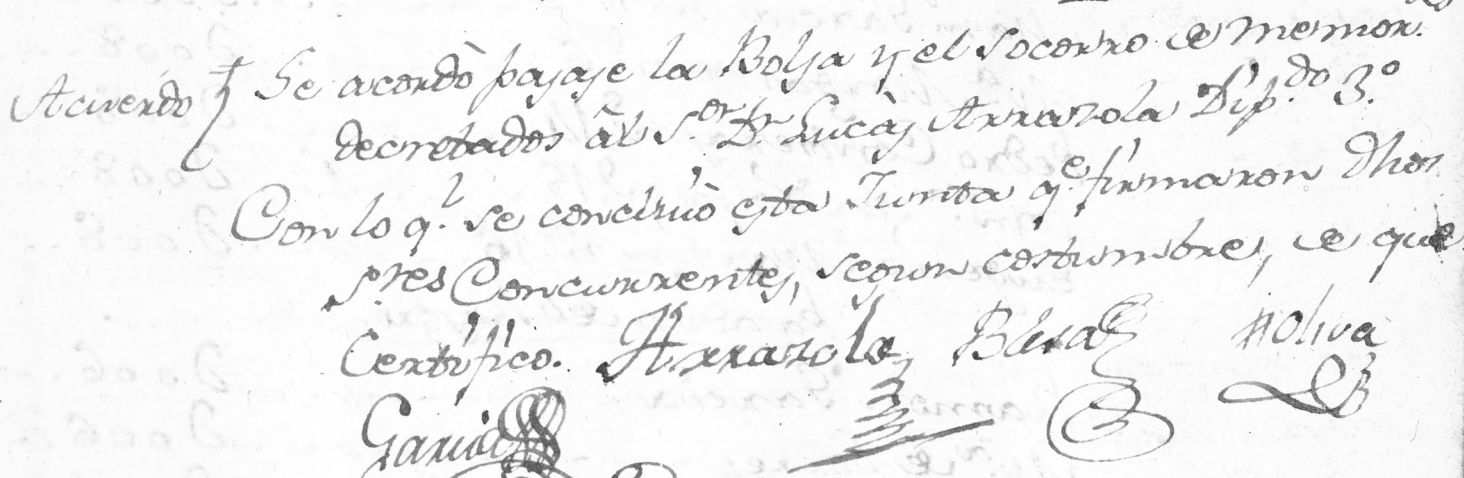 Acuerdo } Se acordò pasase la Bolsa y el Socorro de memor.
decretados âl S.or Dr Lucas Arrazola Dip.do 3.o
Con lo q.l se concluiò esta Junta q.e firmaron dhos
S.res Concurrentes, segun costumbre, de que
Certifico. Arrazola Oliva
Garcia